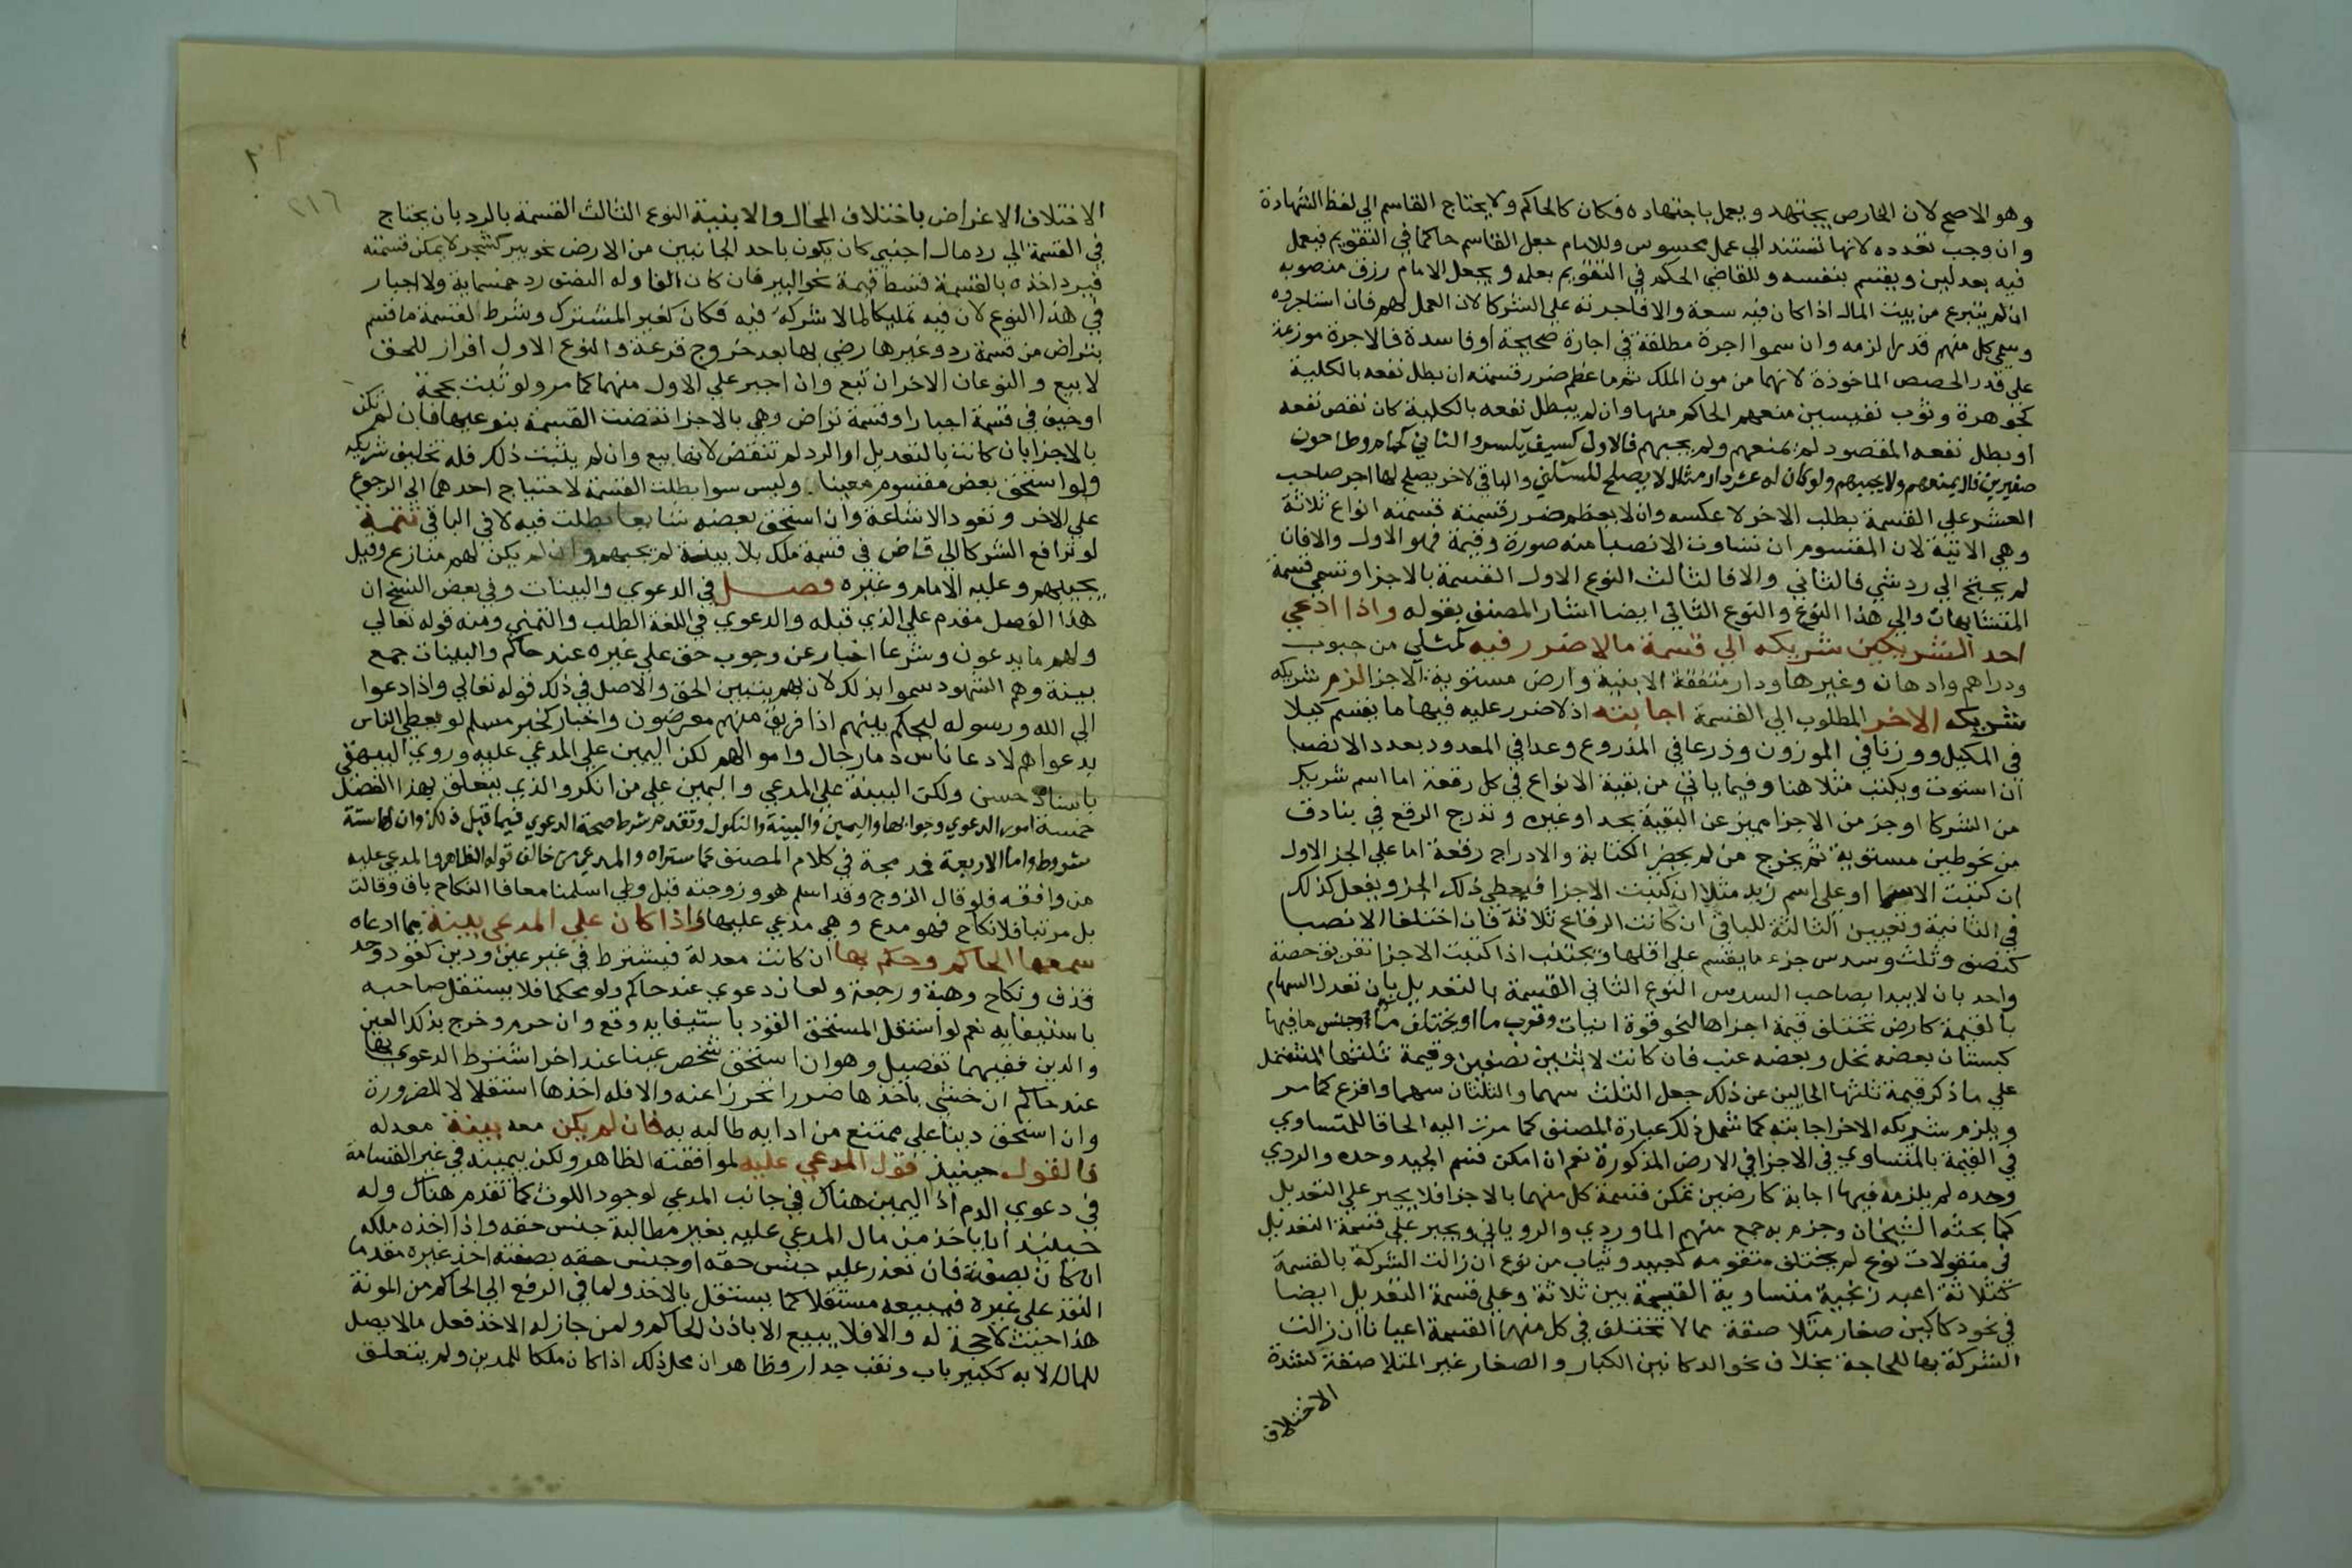 وهو الاصح لان الخارص يجتهد ويعمل باجتهاده فكان كالحاكم ولا يحتاج القاسم الي لفظ الشهادة
وان وجب تعدده لانها تستند الي عمل محسوس وللامام جعل القاسم حاكما في التقويم فيعمل
فيه بعدلين ويقسم بنفسه وللقاضي الحكم في التقويم بعلمه ويجعل الامام رزق منصوبه
ان لم يتبرع من بيت المال اذا كان فيه سعة والا فاجرته علي الشركا لان العمل لهم فان استاجروه
وسمي كل منهم قدرا لزمه وان سموا اجرة مطلقة في اجارة صحيحة او فاسدة فالاجرة موزعة
علي قدر الحصص الماخوذة لانها من مون الملك ثم ما عظم ضرر قسمته ان بطل نفعه بالكلية
كجوهرة وثوب نفيسين منعهم الحاكم منها وان لم يبطل نفعه بالكلية كان نقص نفعه
او بطل نفعه المقصود لم يمنعهم ولم يجبهم فالاول كسيف يكسر والثاني كحمام وطاحون
صغيرين فلا يمنعهم ولا يجيبهم ولو كان له عشر دار مثلا لا يصلح للسكني والباقي لاخر يصلح لها اجبر صاحب
العشر علي القسمة بطلب الاخر لا عكسه وان لا يعظم ضرر قسمته قسمته انواع ثلاثة
وهي الاتية لان المقسوم ان تساوت الانصبا منه صورة وقيمة فهو الاول والا فان
لم يحتج الي رد شي فالثاني والا فالثالث النوع الاول القسمة بالاجزا وتسمي قسمة
المتشابهات والي هذا النوع والنوع الثاني ايضا اشار المصنف بقوله واذا ادعي
احد الشريكين شريكه الي قسمة ما لا ضرر فيه كمثلي من حبوب
ودراهم وادهان وغيرها ودار متفقة الابنية وارض مستوية الاجزا لزم شريكه
شريكه الاخر المطلوب الي القسمة اجابته اذ لا ضرر عليه فيها ما يقسم كيلا
في المكيل ووزنا في الموزون وذرعا في المذروع وعدا في المعدود بعدد الانصبا
ان استوت ويكتب مثلا هنا وفيما ياتي من بقية الانواع في كل رقعة اما اسم شريك
من الشركا او جز من الاجزا مميز عن البقية بحد او غيره وتدرج الرقع في بنادق
من نحو طين مستوية ثم يخرج من لم يحضر الكتابة والادراج رقعة اما علي الجز الاول
ان كتبت الاسما او علي اسم زيد مثلا ان كتبت الاجزا فيعطي ذلك الجز ويفعل كذلك
في الثانية وتعيين الثالثة للباقي ان كانت الرقاع ثلاثة فان اختلفا الانصبا
كنصف وثلث وسدس جزء ما يقسم علي اقلها ويجتنب اذا كتبت الاجزا تفريق حصة
واحد بان لا يبدا بصاحب السدس النوع الثاني القسمة بالتعديل بان تعدل السهام
بالقيمة كارض تختلف قيمة اجزاها لنحو قوة انبات وقرب ما او يختلف جنس ما فيها
كبستان بعضه نخل وبعضه عنب فان كانت لاثنين نصفين وقيمة ثلثها المشتمل
علي ما ذكر قيمة ثلثيها الخاليين عن ذلك جعل الثلث سهما والثلثان سهما واقرع كما مر
ويلزم شريكه الاخر اجابته كما شمل ذلك عبارة المصنف كما مرت اليه الحاقا للمتساوي
في القيمة بالمتساوي في الاجزا في الارض المذكورة نعم ان امكن قسم الجيد وحده والردي
وحده لم يلزمه فيها اجابة كارضين تمكن قسمة كل منهما بالاجزا فلا يجبر علي التعديل
كما بحثه الشيخان وجزم به جمع منهم الماوردي والروياني ويجبر علي قسمة التعديل
في منقولات نوع لم يختلف متقومه كعبيد وثياب من نوع ان زالت الشركة بالقسمة
كثلاثة اعبد زنجية متساوية القيمة بين ثلاثة وعلي قسمة التعديل ايضا
في نحو دكاكين صغار متلاصقة مما لا تختلف في كل منها القسمة اعيانا ان زالت
الشركة بها للحاجة بخلاف نحو الدكانين الكبار والصغار غير المتلاصقة لشدة
الاختلاف
٢١٦
الاختلاف الاغراض باختلاف المحال والابنية النوع الثالث القسمة بالرد بان يحتاج
في القسمة الي رد مال اجنبي كان يكون باحد الجانبين من الارض نحو بير كشجر لا يمكن قسمته
فيرد اخذه بالقسمة قسط قيمة نحو البير فان كان الفا وله النصف رد خمسماية ولا اجبار
في هذا النوع لان فيه تمليكا لما لا شركة فيه فكان كغير المشترك وشرط لقسمة ما قسم
بتراض من قسمة رد وغيرها رضي بها بعد خروج قرعة والنوع الاول افراز للحق
لا بيع والنوعان الاخران بيع وان اجبر علي الاول منهما كما مر ولو ثبت بحجة
او حيف في قسمة اجبار او قسمة تراض وهي بالاجزا نقضت القسمة بنوعيها فان لم تكن
بالاجزا بان كانت بالتعديل او الرد لم تنقض لانها بيع وان لم يثبت ذلك فله تحليف شريكه
ولو استحق بعض مقسوم معينا وليس سوا بطلت القسمة لاحتياج احدهما الي الرجوع
علي الاخر وتعود الاشاعة وان استحق بعضه شايعا بطلت فيه لا في الباقي تتمة
لو ترافع الشركا الي قاض في قسمة ملك بلا بينة لم يجبهم وان لم يكن لهم منازع وقيل
يجيبهم وعليه الامام وغيره فصل في الدعوي والبينات وفي بعض النسخ ان
هذا الفصل مقدم علي الذي قبله والدعوي في اللغة الطلب والتمني ومنه قوله تعالي
ولهم ما يدعون وشرعا اخبار عن وجوب حق علي غيره عند حاكم والبينات جمع
بينة وهم الشهود سموا بذلك لان بهم يتبين الحق والاصل في ذلك قوله تعالي واذا دعوا
الي الله ورسوله ليحكم بينهم اذا فريق منهم معرضون واخبار كخبر مسلم لو يعطي الناس
بدعواهم لادعا ناس دما رجال واموالهم لكن اليمين علي المدعي عليه وروي البيهقي
باسناد حسن ولكن البينة علي المدعي واليمين علي من انكر والذي يتعلق بهذا الفصل
خمسة امور الدعوي وجوابها واليمين والبينة والنكول وتقدم شرط صحة الدعوي فيما قبل ذلك وان لها ستة
شروط واما الاربعة فمدمجة في كلام المصنف كما ستراه والمدعي من خالف قوله الظاهر والمدعي عليه
من وافقه فلو قال الزوج وقد اسلم هو وزوجته قبل وطي اسلمنا معا فالنكاح باق وقالت
بل مرتبا فلا نكاح فهو مدع وهي مدعي عليها واذا كان علي المدعي بينة بما ادعاه
سمعها الحاكم وحكم بها ان كانت معدلة فيشترط في غير عين ودين كقود وحد
قذف ونكاح وهبة ورجعة ولعان دعوي عند حاكم ولو محكما فلا يستقل صاحبه
باستيفايه نعم لو استقل المستحق القود باستيفايه وقع وان حرم وخرج بذلك العين
والدين ففيهما تفصيل وهو ان استحق شخص عينا عند اخر اشترط الدعوي بها
عند حاكم ان خشي باخذها ضررا تحرزا عنه والا فله اخذها استقلالا للضرورة
وان استحق دينا علي ممتنع من ادايه طالبه به فان لم يكن معه بينة معدله
فالقول حينيذ قول المدعي عليه لموافقته الظاهر ولكن بيمينه في غير القسامة
في دعوي الدم اذ اليمين هناك في جانب المدعي لوجود اللوث كما تقدم هناك وله
حينيذ ان ياخذ من مال المدعي عليه بغير مطالبة جنس حقه واذا اخذه ملكه
ان كان بصفته فان تعذر عليه جنس حقه او جنس حقه بصفته اخذ غيره مقدما
النقد علي غيره فيبيعه مستقلا كما يستقل بالاخذ ولما في الرفع الي الحاكم من المونة
هذا حيث لا حجة له والا فلا يبيع الا باذن الحاكم ولمن جاز له الاخذ فعل ما لا يصل
للمال الا به ككسر باب ونقب جدار وظاهر ان محل ذلك اذا كان ملكا للمدين ولم يتعلق